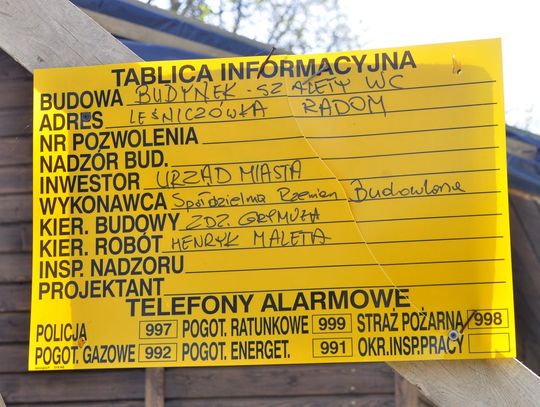 TABLICA INFORMACYJNA
BUDOWA BUDYNEK - SZALETY WC
ADRES LEŚNICZÓWKA RADOM
NR POZWOLENIA
NADZÓR BUD.
INWESTOR URZĄD MIASTA
WYKONAWCA Spółdzielnia Rzemieśln Budowlana
KIER. BUDOWY ZDZ. GRYMUŁA
KIER. ROBÓT HENRYK MALETA
INSP. NADZORU
PROJEKTANT
TELEFONY ALARMOWE
POLICJA 997 POGOT. RATUNKOWE 999 STRAŻ POŻARNA 998
POGOT. GAZOWE 992 POGOT. ENERGET. 991 OKR.INSP.PRACY